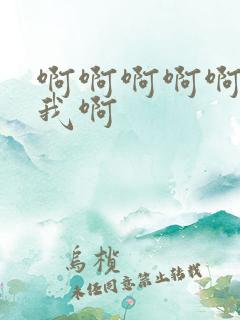 啊啊啊啊啊
我啊
乌椟
未经同意禁止转载